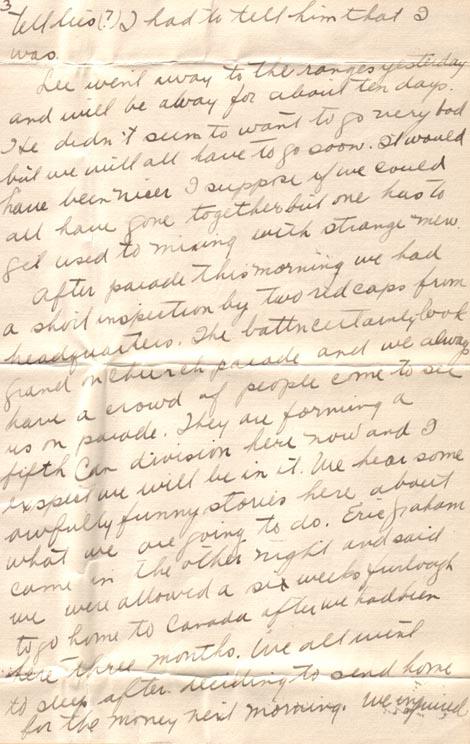 3
tell lies (?) I had to tell him that I
was.
Lee went away to the ranges yesterday
and will be away for about ten days.
He didn't seem to want to go very bad
but we will all have to go soon. It would
have been nicer I suppose if we could
all have gone together but one has to
get used to mixing with strange men.
After parade this morning we had
a short inspection by two red caps from
headquarters. The battn certainly look
grand on church parade and we always
have a crowd of people come to see
us on parade. They are forming a
fifth Can division here now and I
expect we will be in it. We hear some
awfully funny stories here about
what we are going to do. Eric Graham
came in the other night and said
we were allowed a six weeks furlough
to go home to Canada after we had been
here three months. We all went
to sleep after deciding to send home
for the money next morning. We inquired